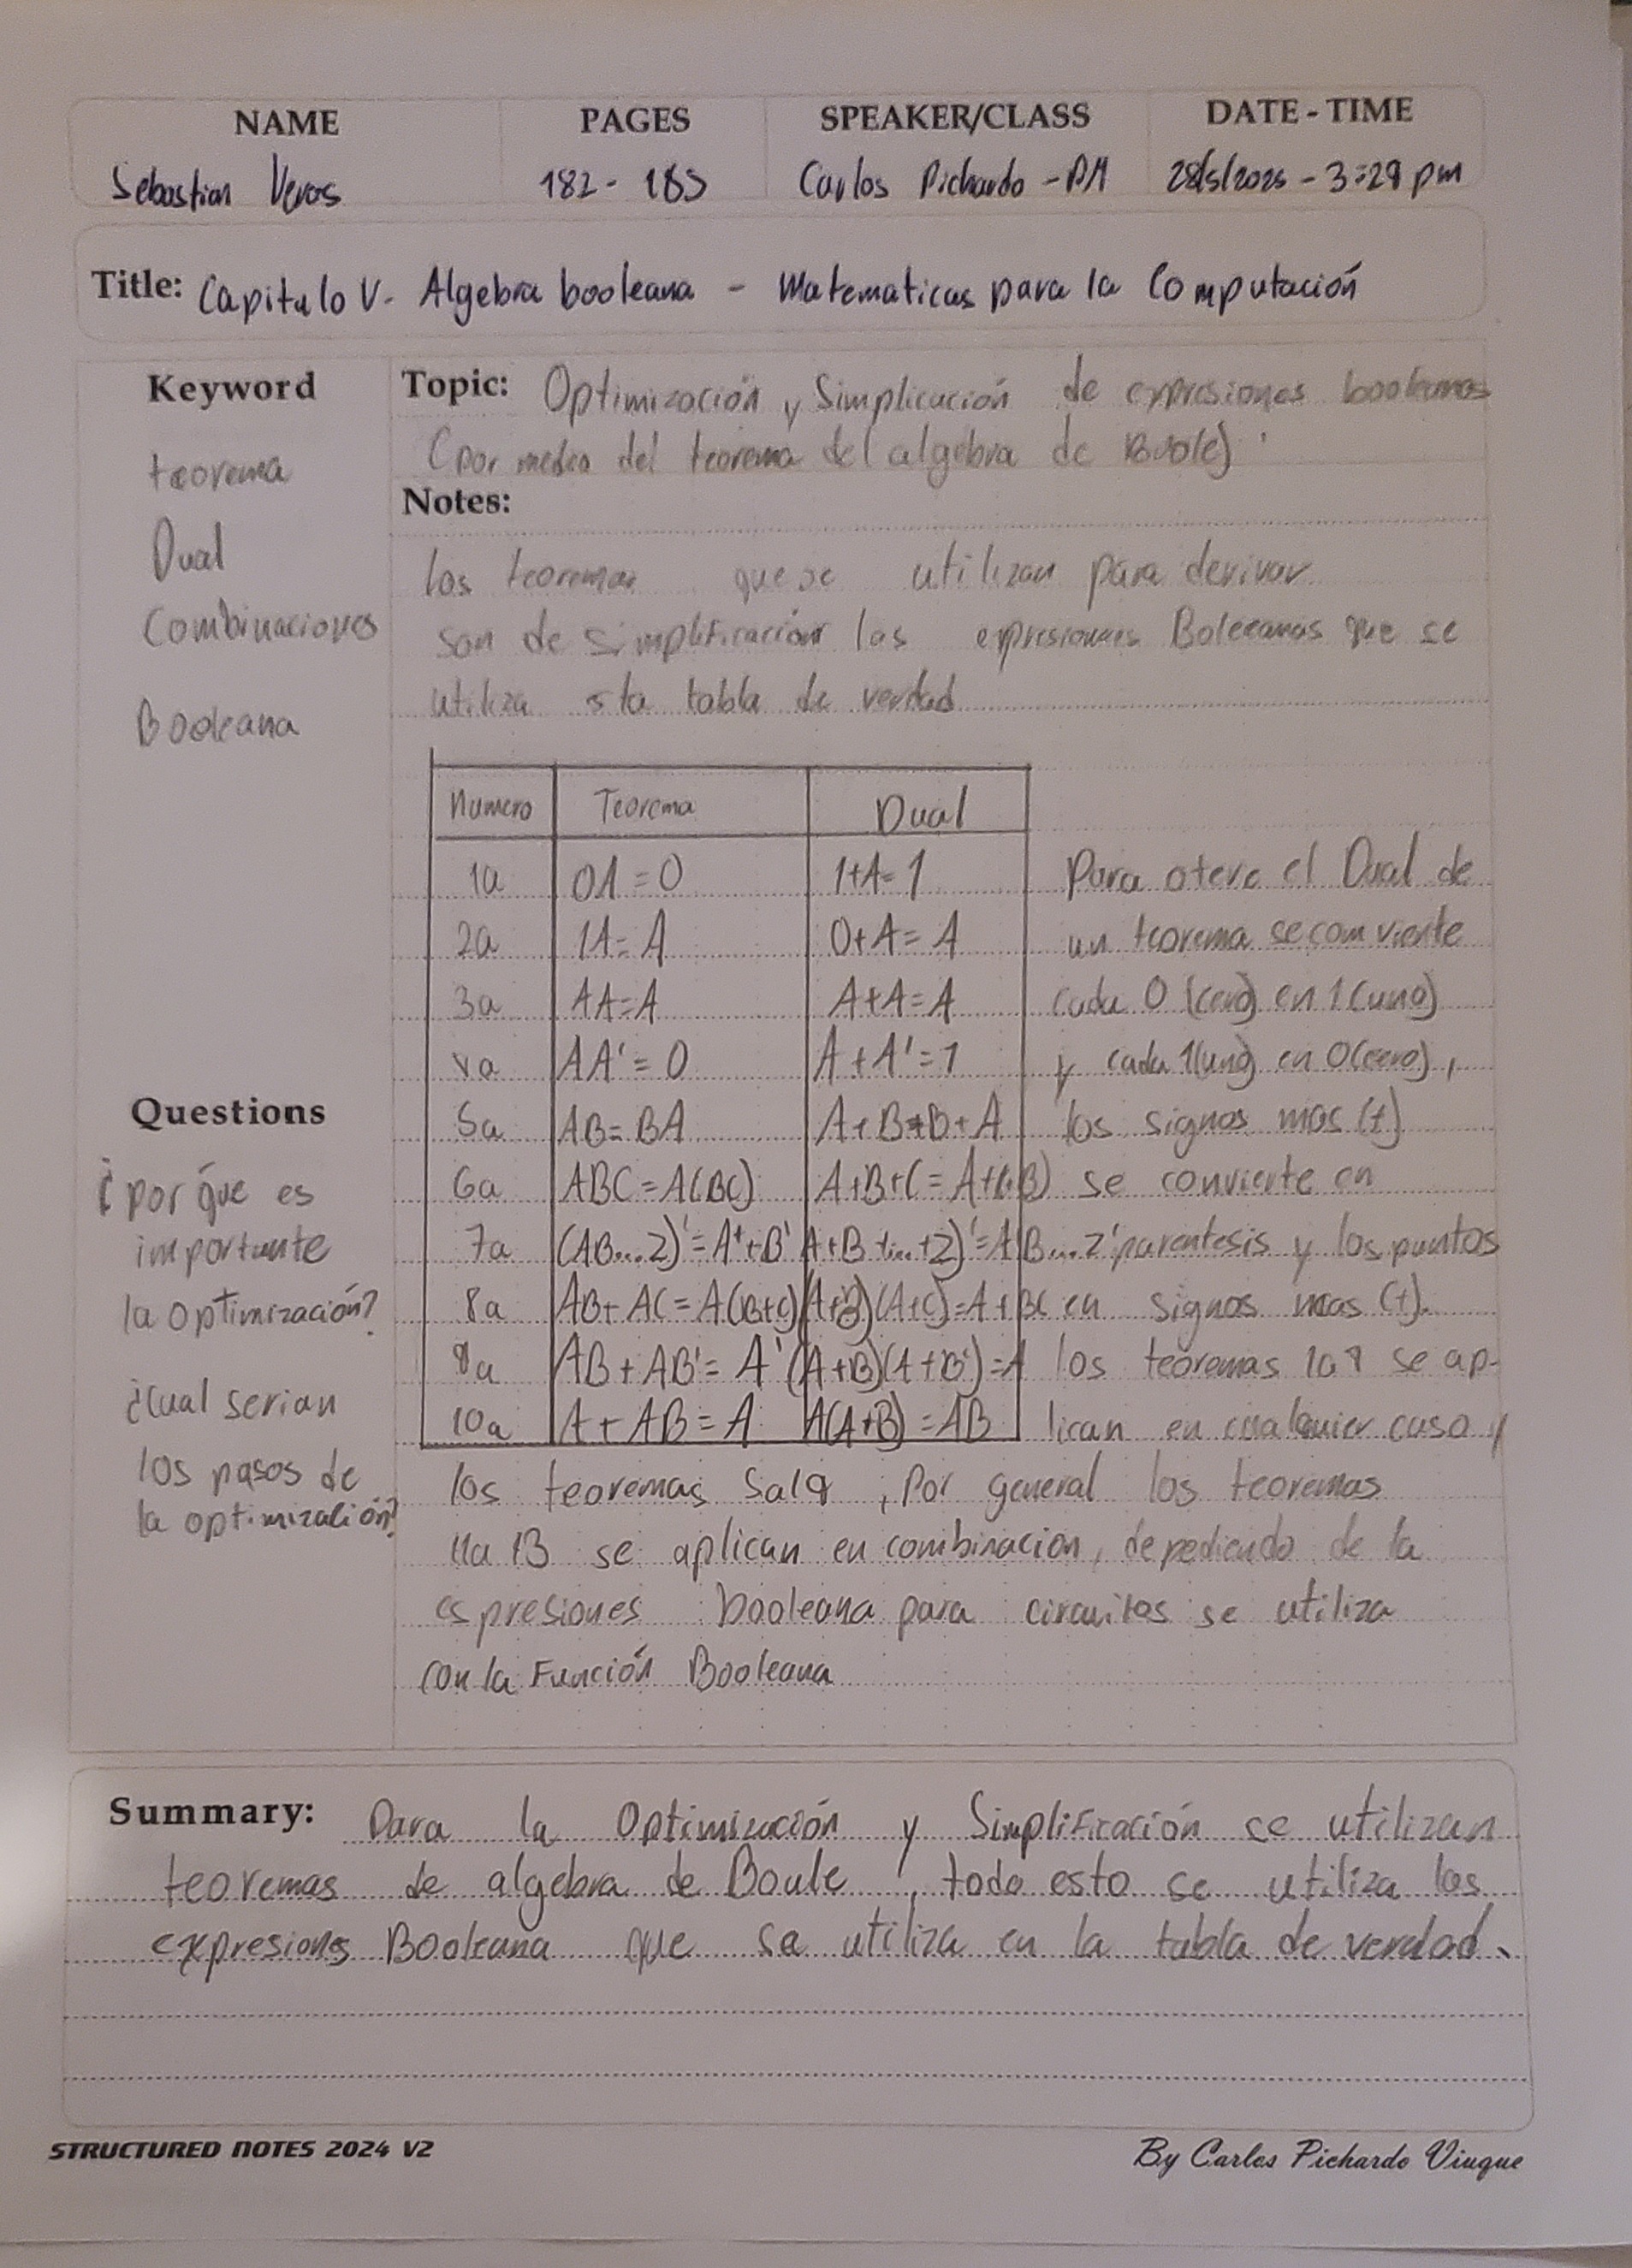 NAME PAGES SPEAKER/CLASS DATE - TIME
Sebastian Veras 182 - 185 Carlos Pichardo - PM 28/5/2025 - 3:29 pm
Title: Capitulo V. Algebra booleana - Matematicas para la Computación
Keyword
teorema
Dual
Combinaciones
Booleana
Questions
¿por que es
importante
la optimización?
¿cual serian
los pasos de
la optimización?
Topic: Optimización y Simplicación de expresiones booleanas
(por medio del teorema del algebra de Boole)
Notes:
los teoremas que se utilizan para derivar
son de simplificación las expresiones Boleeanas que se
utiliza sta tabla de verdad
Numero Teorema Dual
1a 0A = 0 1+A= 1
2a 1A= A 0+A= A
3a AA=A A+A=A
4a AA' = 0 A + A' = 1
5a AB= BA A+B=B+A
6a ABC = A(BC) A+B+C = A+(+B)
7a (AB...Z)' = A'+B' A+B+...+Z)' = A'B...Z'
8a AB+ AC = A(B+C) (A+B)(A+C)=A+BC
9a AB + AB' = A' (A+B)(A+B')=A
10a A + AB = A A(A+B) = AB
Para otere el Dual de
un teorema se comvierte
cada 0 (cero) en 1(uno)
y cada 1(uno) en 0(cero),
los signos mas (+)
se convierte en
parentesis y los puntos
en signos mas (+).
los teoremas 1a9 se ap-
lican en cualquier caso y
los teoremas 5a19, por general los teoremas
11a 13 se aplican en combinacion, depediendo de la
espresiones booleana para circuitos se utiliza
con la Función Booleana
Summary: Para la Optimización y Simplificación se utilizan
teoremas de algebra de Boule, todo esto se utiliza las
expresiones Booleana que se utiliza en la tabla de verdad.
STRUCTURED NOTES 2024 V2 By Carlos Pichardo Viuque